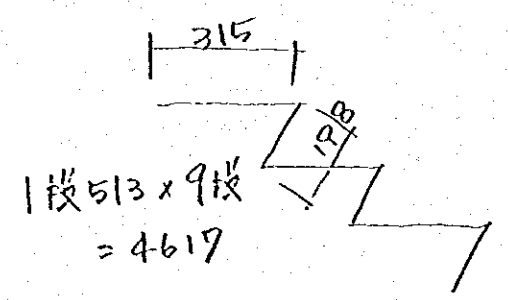 315
198
1段513×9段
=4617